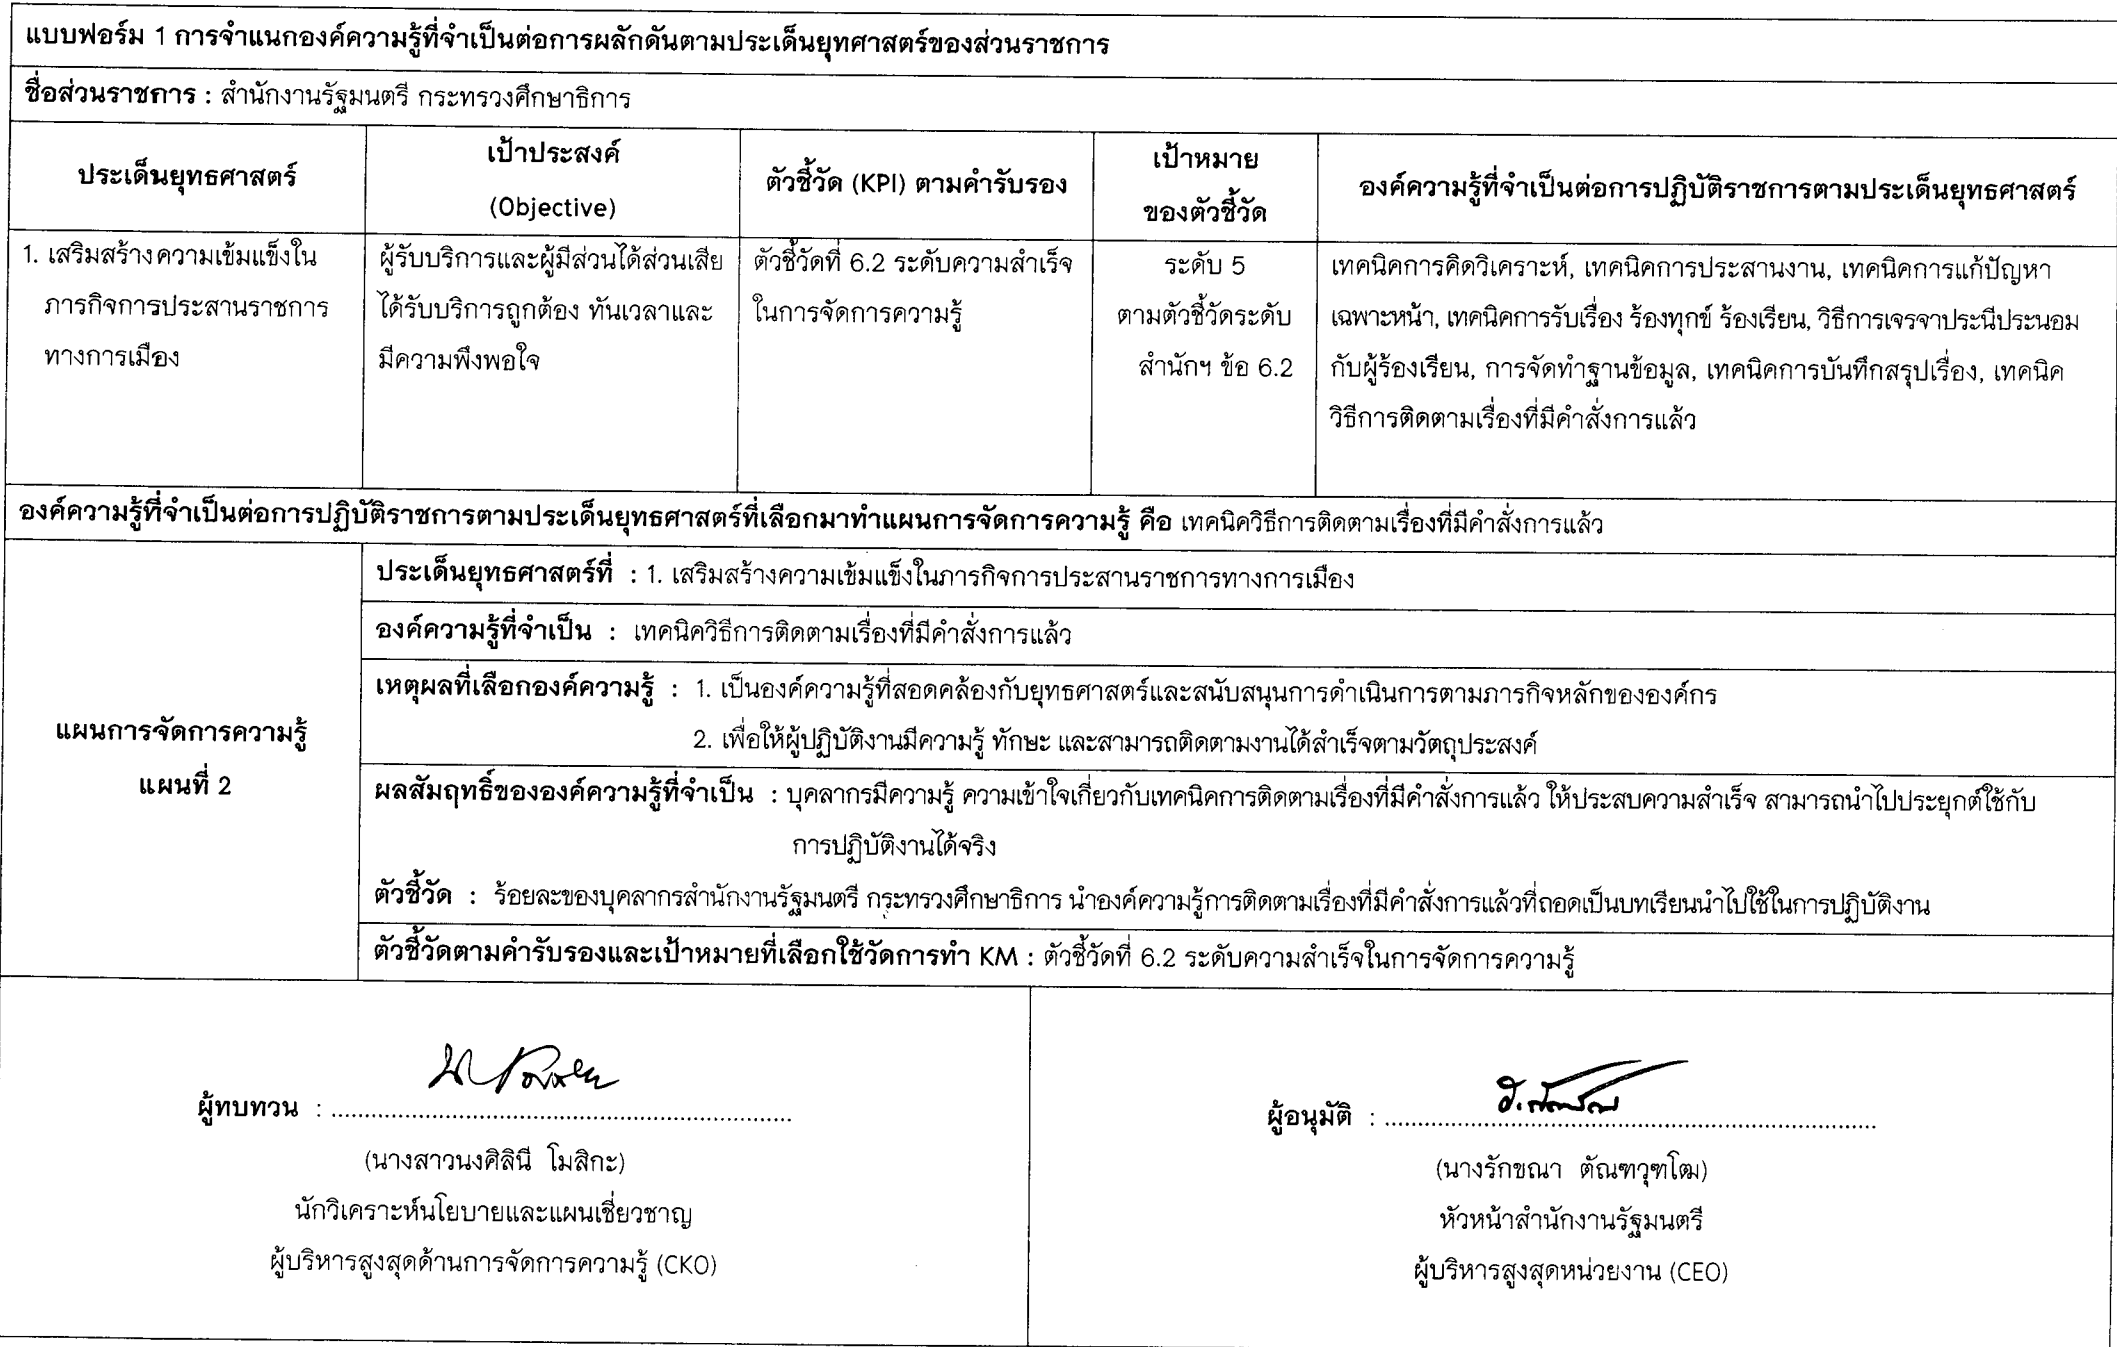 แบบฟอร์ม 1 การจำแนกองค์ความรู้ที่จำเป็นต่อการผลักดันตามประเด็นยุทศาสตร์ของส่วนราชการ
ชื่อส่วนราชการ : สำนักงานรัฐมนตรี กระทรวงศึกษาธิการ
ประเด็นยุทธศาสตร์
เป้าประสงค์
(Objective)
ตัวชี้วัด (KPI) ตามคำรับรอง
เป้าหมาย
ของตัวชี้วัด
องค์ความรู้ที่จำเป็นต่อการปฏิบัติราชการตามประเด็นยุทธศาสตร์
1. เสริมสร้างความเข้มแข็งใน
ภารกิจการประสานราชการ
ทางการเมือง
ผู้รับบริการและผู้มีส่วนได้ส่วนเสีย
ได้รับบริการถูกต้อง ทันเวลาและ
มีความพึงพอใจ
ตัวชี้วัดที่ 6.2 ระดับความสำเร็จ
ในการจัดการความรู้
ระดับ 5
ตามตัวชี้วัดระดับ
สำนักฯ ข้อ 6.2
เทคนิคการคิดวิเคราะห์, เทคนิคการประสานงาน, เทคนิคการแก้ปัญหา
เฉพาะหน้า, เทคนิคการรับเรื่อง ร้องทุกข์ ร้องเรียน, วิธีการเจรจาประนีประนอม
กับผู้ร้องเรียน, การจัดทำฐานข้อมูล, เทคนิคการบันทึกสรุปเรื่อง, เทคนิค
วิธีการติดตามเรื่องที่มีคำสั่งการแล้ว
องค์ความรู้ที่จำเป็นต่อการปฏิบัติราชการตามประเด็นยุทธศาสตร์ที่เลือกมาทำแผนการจัดการความรู้ คือ เทคนิควิธีการติดตามเรื่องที่มีคำสั่งการแล้ว
แผนการจัดการความรู้
แผนที่ 2
ประเด็นยุทธศาสตร์ที่ : 1. เสริมสร้างความเข้มแข็งในภารกิจการประสานราชการทางการเมือง
องค์ความรู้ที่จำเป็น : เทคนิควิธีการติดตามเรื่องที่มีคำสั่งการแล้ว
เหตุผลที่เลือกองค์ความรู้ : 1. เป็นองค์ความรู้ที่สอดคล้องกับยุทธศาสตร์และสนับสนุนการดำเนินการตามภารกิจหลักขององค์กร
2. เพื่อให้ผู้ปฏิบัติงานมีความรู้ ทักษะ และสามารถติดตามงานได้สำเร็จตามวัตถุประสงค์
ผลสัมฤทธิ์ขององค์ความรู้ที่จำเป็น : บุคลากรมีความรู้ ความเข้าใจเกี่ยวกับเทคนิคการติดตามเรื่องที่มีคำสั่งการแล้ว ให้ประสบความสำเร็จ สามารถนำไปประยุกต์ใช้กับ
การปฏิบัติงานได้จริง
ตัวชี้วัด : ร้อยละของบุคลากรสำนักงานรัฐมนตรี กระทรวงศึกษาธิการ นำองค์ความรู้การติดตามเรื่องที่มีคำสั่งการแล้วที่ถอดเป็นบทเรียนนำไปใช้ในการปฏิบัติงาน
ตัวชี้วัดตามคำรับรองและเป้าหมายที่เลือกใช้วัดการทำ KM : ตัวชี้วัดที่ 6.2 ระดับความสำเร็จในการจัดการความรู้
ผู้ทบทวน : ......................................................................
(นางสาวนงศิลินี โมสิกะ)
นักวิเคราะห์นโยบายและแผนเชี่ยวชาญ
ผู้บริหารสูงสุดด้านการจัดการความรู้ (CKO)
ผู้อนุมัติ : ..........................................................................
(นางรักขณา ตัณฑวุฑโฒ)
หัวหน้าสำนักงานรัฐมนตรี
ผู้บริหารสูงสุดหน่วยงาน (CEO)